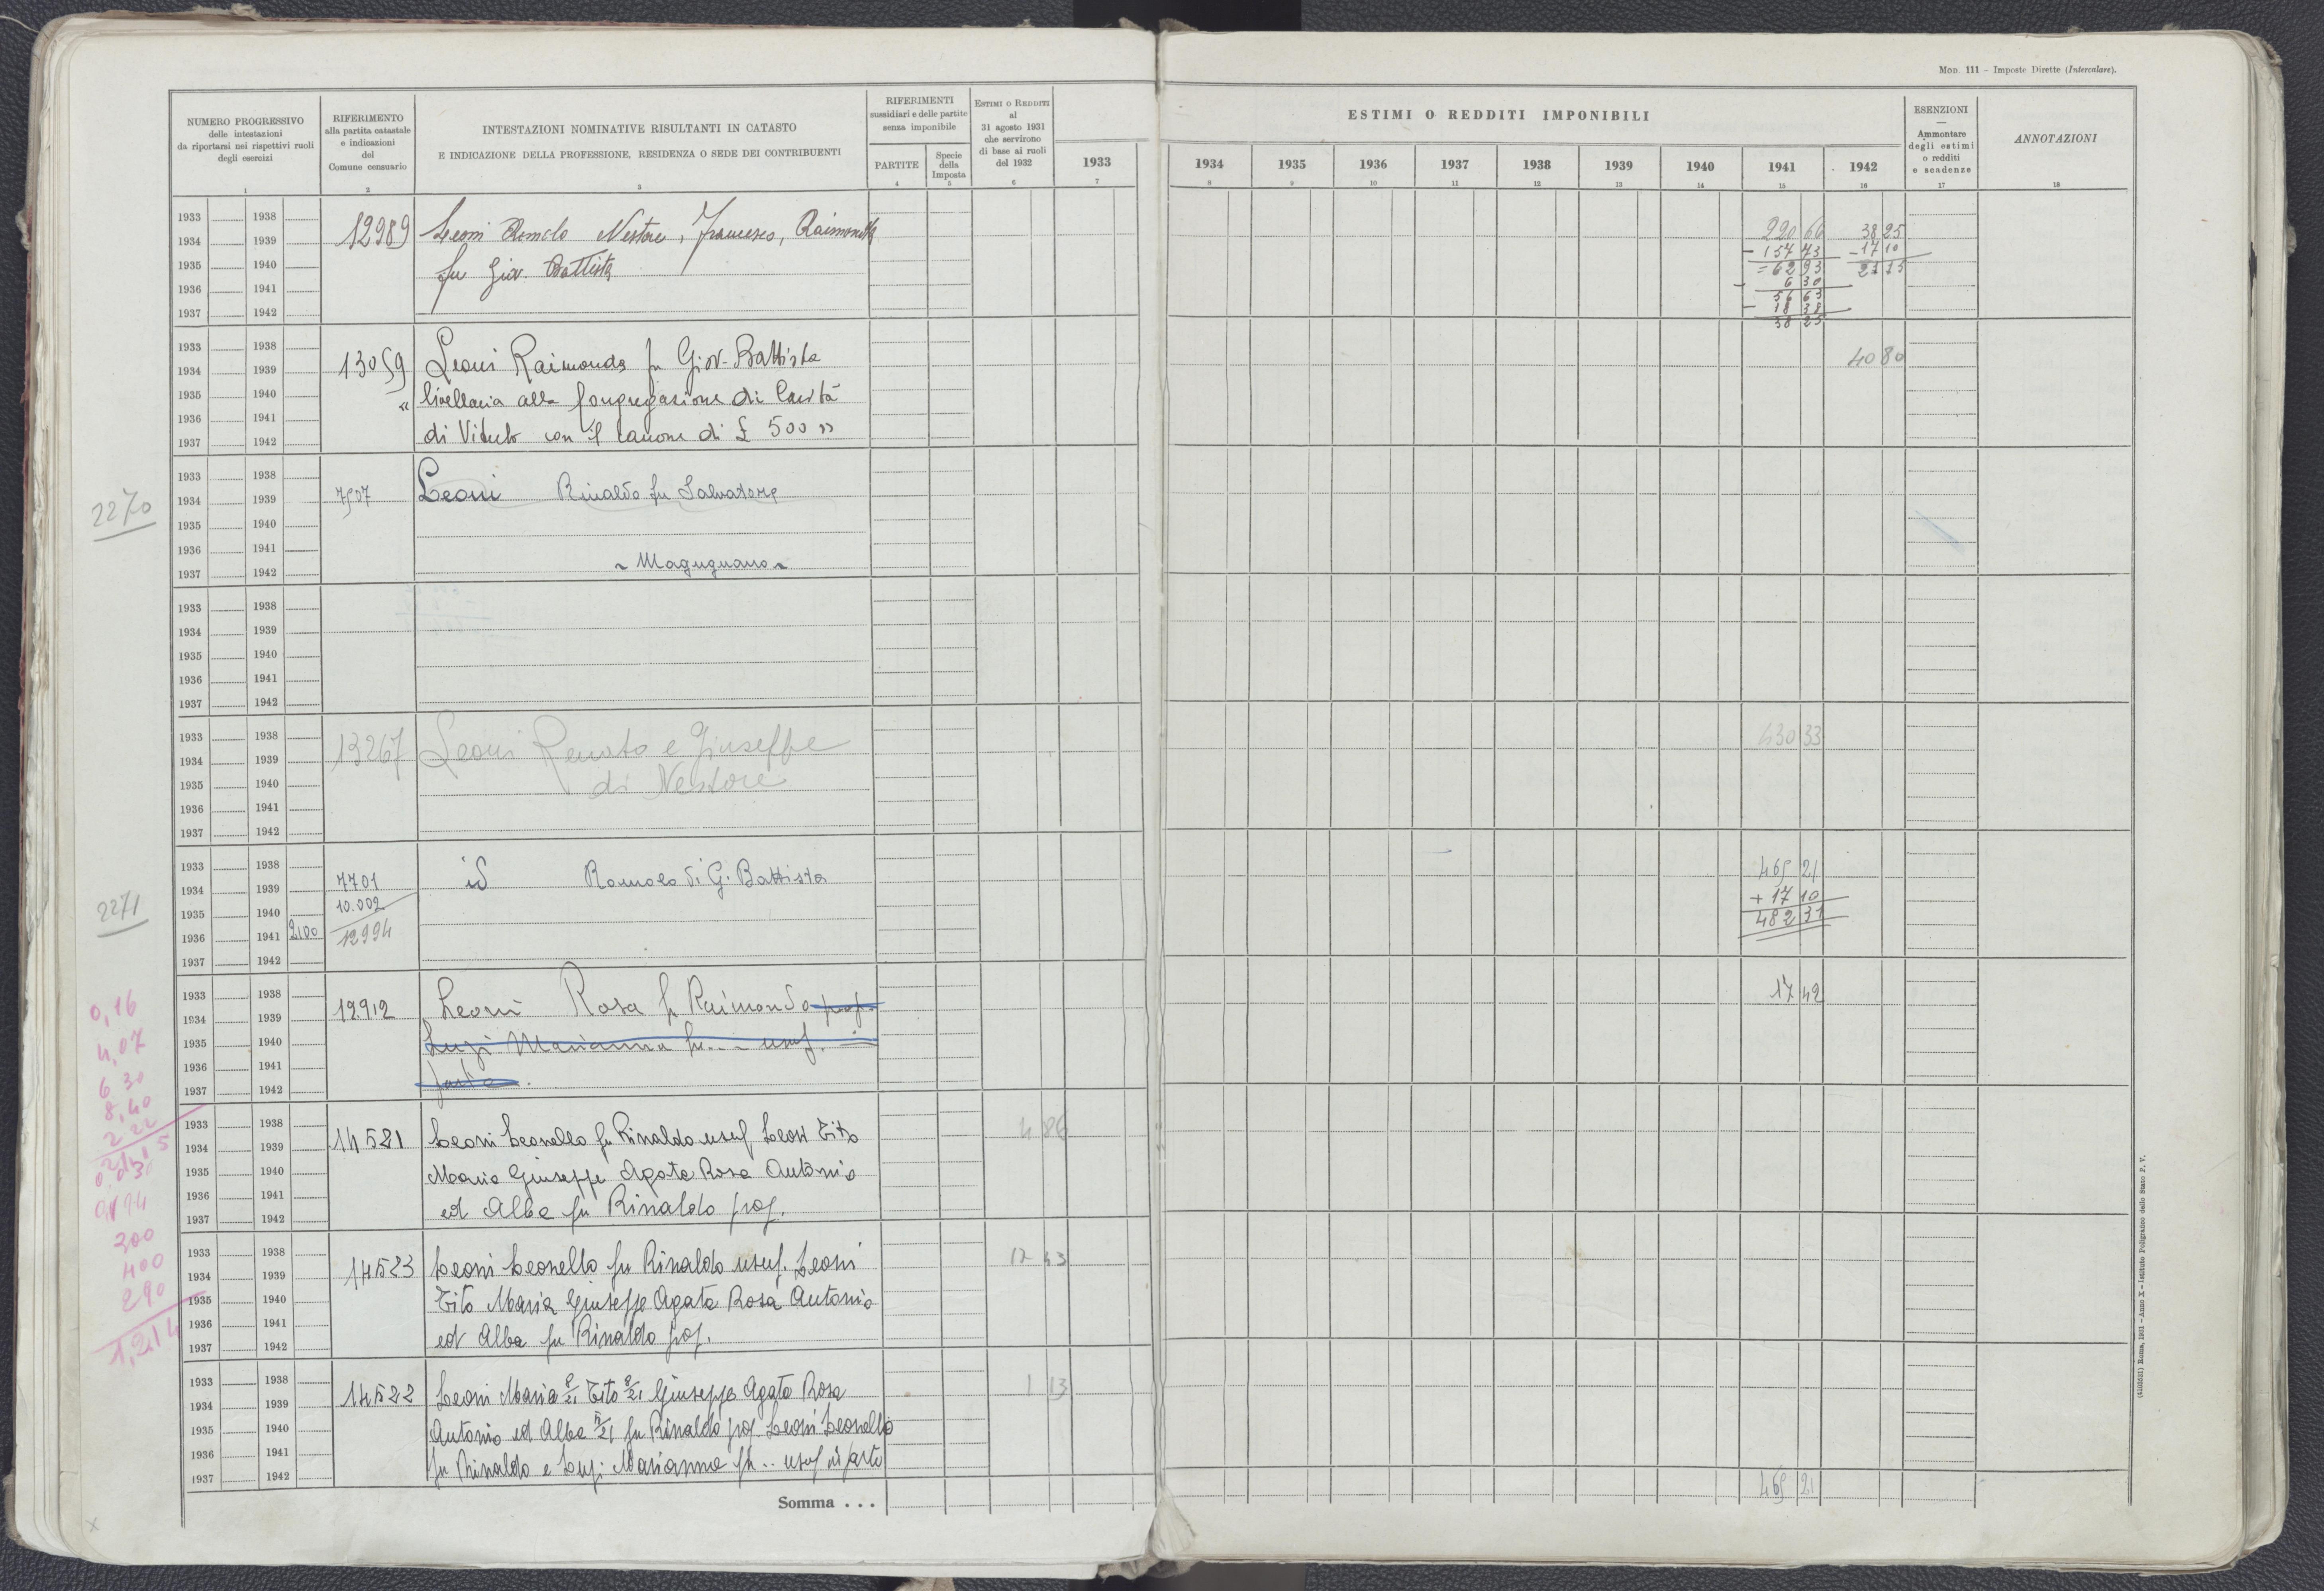 MOD. 111 – Imposte Dirette (Intercalare).
NUMERO PROGRESSIVO
delle intestazioni
da riportarsi nei rispettivi ruoli
degli esercizi
1
RIFERIMENTO
alla partita catastale
e indicazioni
del
Comune censuario
2
INTESTAZIONI NOMINATIVE RISULTANTI IN CATASTO
E INDICAZIONE DELLA PROFESSIONE, RESIDENZA O SEDE DEI CONTRIBUENTI
3
RIFERIMENTI
sussidiari e delle partite
senza imponibile
PARTITE
4
Specie
della
Imposta
5
ESTIMI O REDDITI
al
31 agosto 1931
che servirono
di base ai ruoli
del 1932
6
1933
7
ESTIMI O REDDITI IMPONIBILI
1934 1935 1936 1937 1938 1939 1940 1941 1942
8 9 10 11 12 13 14 15 16
ESENZIONI
—
Ammontare
degli estimi
o redditi
e scadenze
17
ANNOTAZIONI
18
1933 1938
1934 1939
1935 1940
1936 1941
1937 1942
12989
Leoni Romolo Nestore, Francesco, Raimonda
fu Giov. Battista
220 66
- 157 73
= 62 93
- 6 30
56 63
- 18 38
38 25
38 25
- 17 10
21 15
1933 1938
1934 1939
1935 1940
1936 1941
1937 1942
13059
Leoni Raimonda fu Giov. Battista
" livellaria alla Congregazione di Carità
di Viterbo con il canone di £ 500 "
40 80
2270
1933 1938
1934 1939
1935 1940
1936 1941
1937 1942
7507
Leoni Rinaldo fu Salvatore
~ Magugnano ~
1933 1938
1934 1939
1935 1940
1936 1941
1937 1942
1933 1938
1934 1939
1935 1940
1936 1941
1937 1942
13267
Leoni Renato e Giuseppe
di Nestore
430 33
2271
1933 1938
1934 1939
1935 1940
1936 1941 2100
1937 1942
7701
10.002
12994
id Romolo di G. Battista
465 21
+ 17 10
482 31
1933 1938
1934 1939
1935 1940
1936 1941
1937 1942
12912
Leoni Rosa fu Raimondo prop.
Luzi Marianna fu... usuf.
parte.
17 42
0,16
4,07
6 30
8,40
2 22
200
400
290
1,214
1933 1938
1934 1939
1935 1940
1936 1941
1937 1942
14521
Leoni Leonello fu Rinaldo usuf Leoni Tito
Maria Giuseppe Agata Rosa Antonio
ed Alba fu Rinaldo prop.
4 86
1933 1938
1934 1939
1935 1940
1936 1941
1937 1942
14523
Leoni Leonello fu Rinaldo usuf. Leoni
Tito Maria Giuseppe Agata Rosa Antonio
ed Alba fu Rinaldo prop.
12 43
1933 1938
1934 1939
1935 1940
1936 1941
1937 1942
14522
Leoni Maria Tito Giuseppe Agata Rosa
Antonio ed Alba fu Rinaldo prop. Leoni Leonello
fu Rinaldo e Luzi Marianna fu .. usuf di parte
1 13
Somma . . .
465 21
Roma, 1931 – Anno X – Istituto Poligrafico dello Stato P. V.